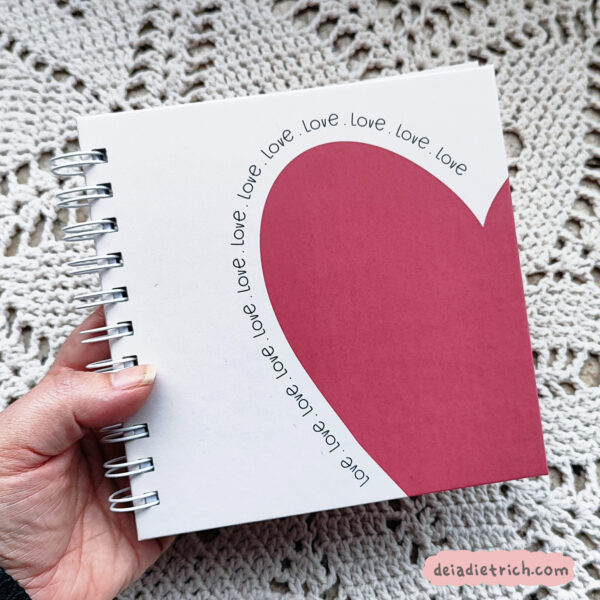 love . love . love . love . love . love . love . love . love . love . love . love . love
deiadietrich.com